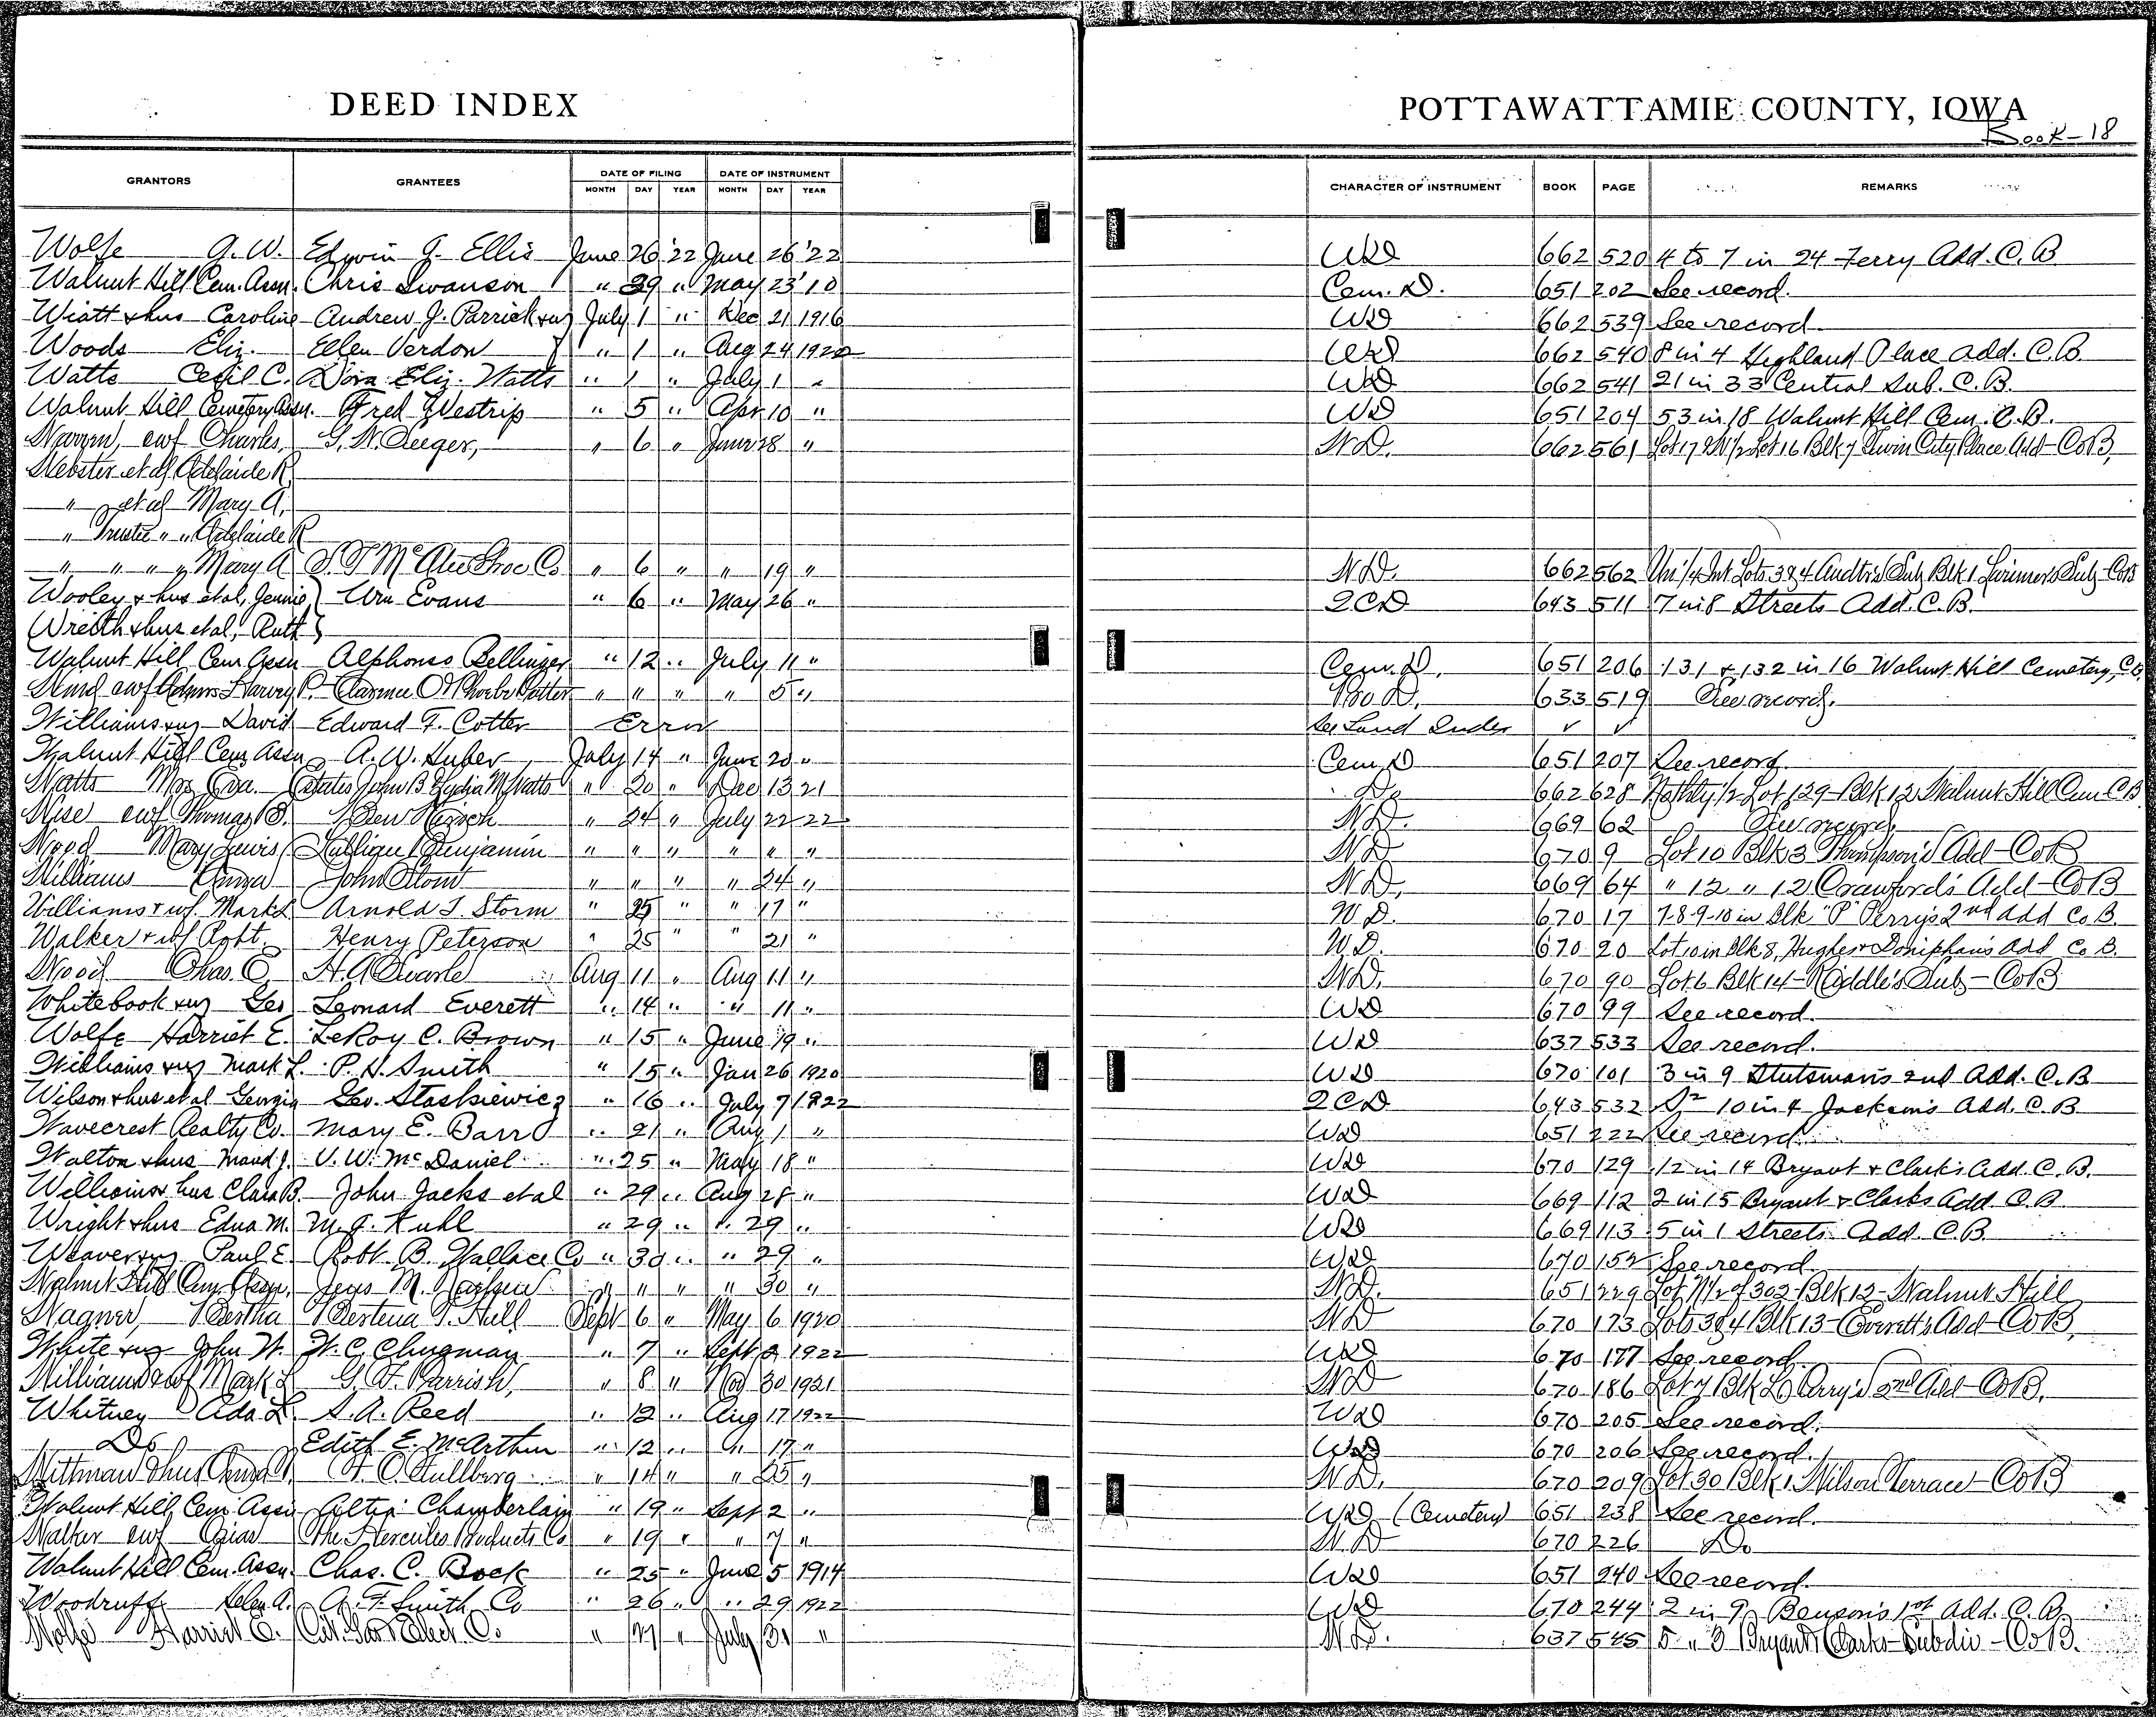 DEED INDEX POTTAWATTAMIE COUNTY, IOWA
Book-18
GRANTORS GRANTEES DATE OF FILING DATE OF INSTRUMENT CHARACTER OF INSTRUMENT BOOK PAGE REMARKS
MONTH DAY YEAR MONTH DAY YEAR
Wolfe G. W. Edwin J. Ellis June 26 '22 June 26 '22 WD 662 520 4 to 7 in 24 Ferry Add. C. B
Walnut Hill Cem. Assn. Chris Swanson " 29 " May 23 '10 Cem. D. 651 202 See record.
Wiatt & hus Caroline Andrew J. Parrick & ux July 1 " Dec 21 1916 WD 662 539 See record
Woods Eliz. Ellen Verdon " 1 " Aug 24 1922 WD 662 540 8 in 4 Highland Place Add. C. B
Watts Cecil C. Dora Eliz. Watts " 1 " July 1 " WD 662 541 21 in 33 Central Sub. C. B.
Walnut Hill Cemetery Assn. Fred Westrip " 5 " Apr 10 " WD 651 204 53 in 18 Walnut Hill Cem. C. B.
& wf Charles, " 6 " June 28 " W.D. 662 561 Lot 17 & N 1/2 Lot 16 Blk 7 Twin City Place Add - Co B,
Webster et al Adelaide R
" et al Mary A,
" Trustee " " Adelaide R
" " " " Mary A Shoe Co " 6 " " 19 " W.D. 662 562 Un 1/4 Int Lots 3 & 4 Sub Blk 1 Larimer's Sub - Co B
Wooley & hus et al, Jennie } Wm Evans " 6 " May 26 " QCD 643 511 7 in 8 Streets Add. C. B.
& hus et al, Ruth }
Walnut Hill Cem Assn Alphonso Bellinger " 12 " July 11 " Cem. D. 651 206 131 & 132 in 16 Walnut Hill Cemetery, C. B,
Harvey P. Clarence O & Phoebe Potter " " " " 5 " 633 519 See record.
Williams & ux David Edward F. Cotter Error See Land Index ✓ ✓
Walnut Hill Cem Assn A. W. Huber July 14 " June 20 " Cem D 651 207 See record.
Watts Mrs Eva. Estates John B & Lydia M Watts " 20 " Dec 13 21 Do 662 628 1/2 Lot 129 - Blk 12 Walnut Hill Cem C B
Wise & wf Thomas B. Ben Hirsch " 24 " July 22 22 W.D. 669 62 See record.
Wood Mary Lewis Benjamin " " " " " " W D 670 9 Lot 10 Blk 3 Thompson's Add - Co B
Williams Anna John " " " " 24 " W.D. 669 64 " 12 " 12 Crawford's Add - Co B
Williams & wf. Mark L Arnold J. Storm " 25 " " 17 " W. D. 670 17 7-8-9-10 in Blk "P" Perry's 2nd Add Co B.
Walker & wf Robt. Henry Peterson " 25 " " 21 " W. D. 670 20 Lot 10 in Blk 8, Hughes & Doniphan's Add Co B.
Wood Chas. E. H. A. Quarle Aug 11 " Aug 11 " W.D. 670 90 Lot 6 Blk 14 - Riddle's Sub - Co B
Whitebook & ux Geo Leonard Everett " 14 " " 11 " WD 670 99 See record.
Wolfe Harriet E. LeRoy C. Brown " 15 " June 19 " WD 637 533 See record.
Williams & ux Mark L. P. H. Smith " 15 " Jan 26 1920 WD 670 101 3 in 9 Stutsman's 2nd Add. C. B
Wilson & hus et al Georgia Geo. Staskiewicz " 16 " July 7 1922 QCD 643 532 10 in 4 Jackson's Add. C. B
Wavecrest Realty Co. Mary E. Barr " 21 " Aug 1 " WD 651 222 See record.
Walton & hus Maud J. V. W. McDaniel " 25 " May 18 " WD 670 129 12 in 14 Bryant & Clark's Add. C. B.
Williams & hus Clara B. John Jacks et al " 29 " Aug 28 " WD 669 112 2 in 15 Bryant & Clarks Add. C. B
Wright & hus Edna M. M. J. Kuhl " 29 " " 29 " WD 669 113 5 in 1 Streets Add. C. B
Weaver & ux Paul E. Robt. B. Wallace Co " 30 " " 29 " WD 670 152 See record.
Walnut Hill Cem. Assn. Jens M. " " " " 30 " W.D. 651 229 Lot N 1/2 of 302 - Blk 12 - Walnut Hill
Wagner, Bertha Bertena P. Hull Sept 6 " May 6 1920 W D 670 173 Lots 3 & 4 Blk 13 - Everett's Add - Co B,
White & ux John W. W. C. Clingman " 7 " Sept 2 1922 WD 670 177 See record.
Williams & wf Mark L G. W. Parrish, " 8 " Nov 30 1921 W D 670 186 Lot 7 Blk L Perry's 2nd Add - Co B.
Whitney Ada L. S. A. Reed " 12 " Aug 17 1922 WD 670 205 See record.
Do Edith E. McArthur " 12 " " 17 " WD 670 206 See record.
Wittman & hus Anna Hullberg " 14 " " 25 " W.D. 670 209 Lot 30 Blk 1 Wilson Terrace - Co B
Walnut Hill Cem Assn Chamberlain " 19 " Sept 2 " WD (Cemetery) 651 238 See record.
Walker & wf The Hercules Products Co " 19 " " 7 " W. D 670 226 Do
Walnut Hill Cem. Assn. Chas. C. Bock " 25 " June 5 1914 WD 651 240 See record.
Woodruff Helen A. A. F. Smith Co " 26 " " 29 1922 WD 670 244 2 in 9 Benson's 1st Add. C. B,
Wolfe Harriet E. Cit. Gas & Elect. Co. " 27 " July 31 " W.D. 637 545 5 " 3 Bryant & Clarks Subdiv - Co B.